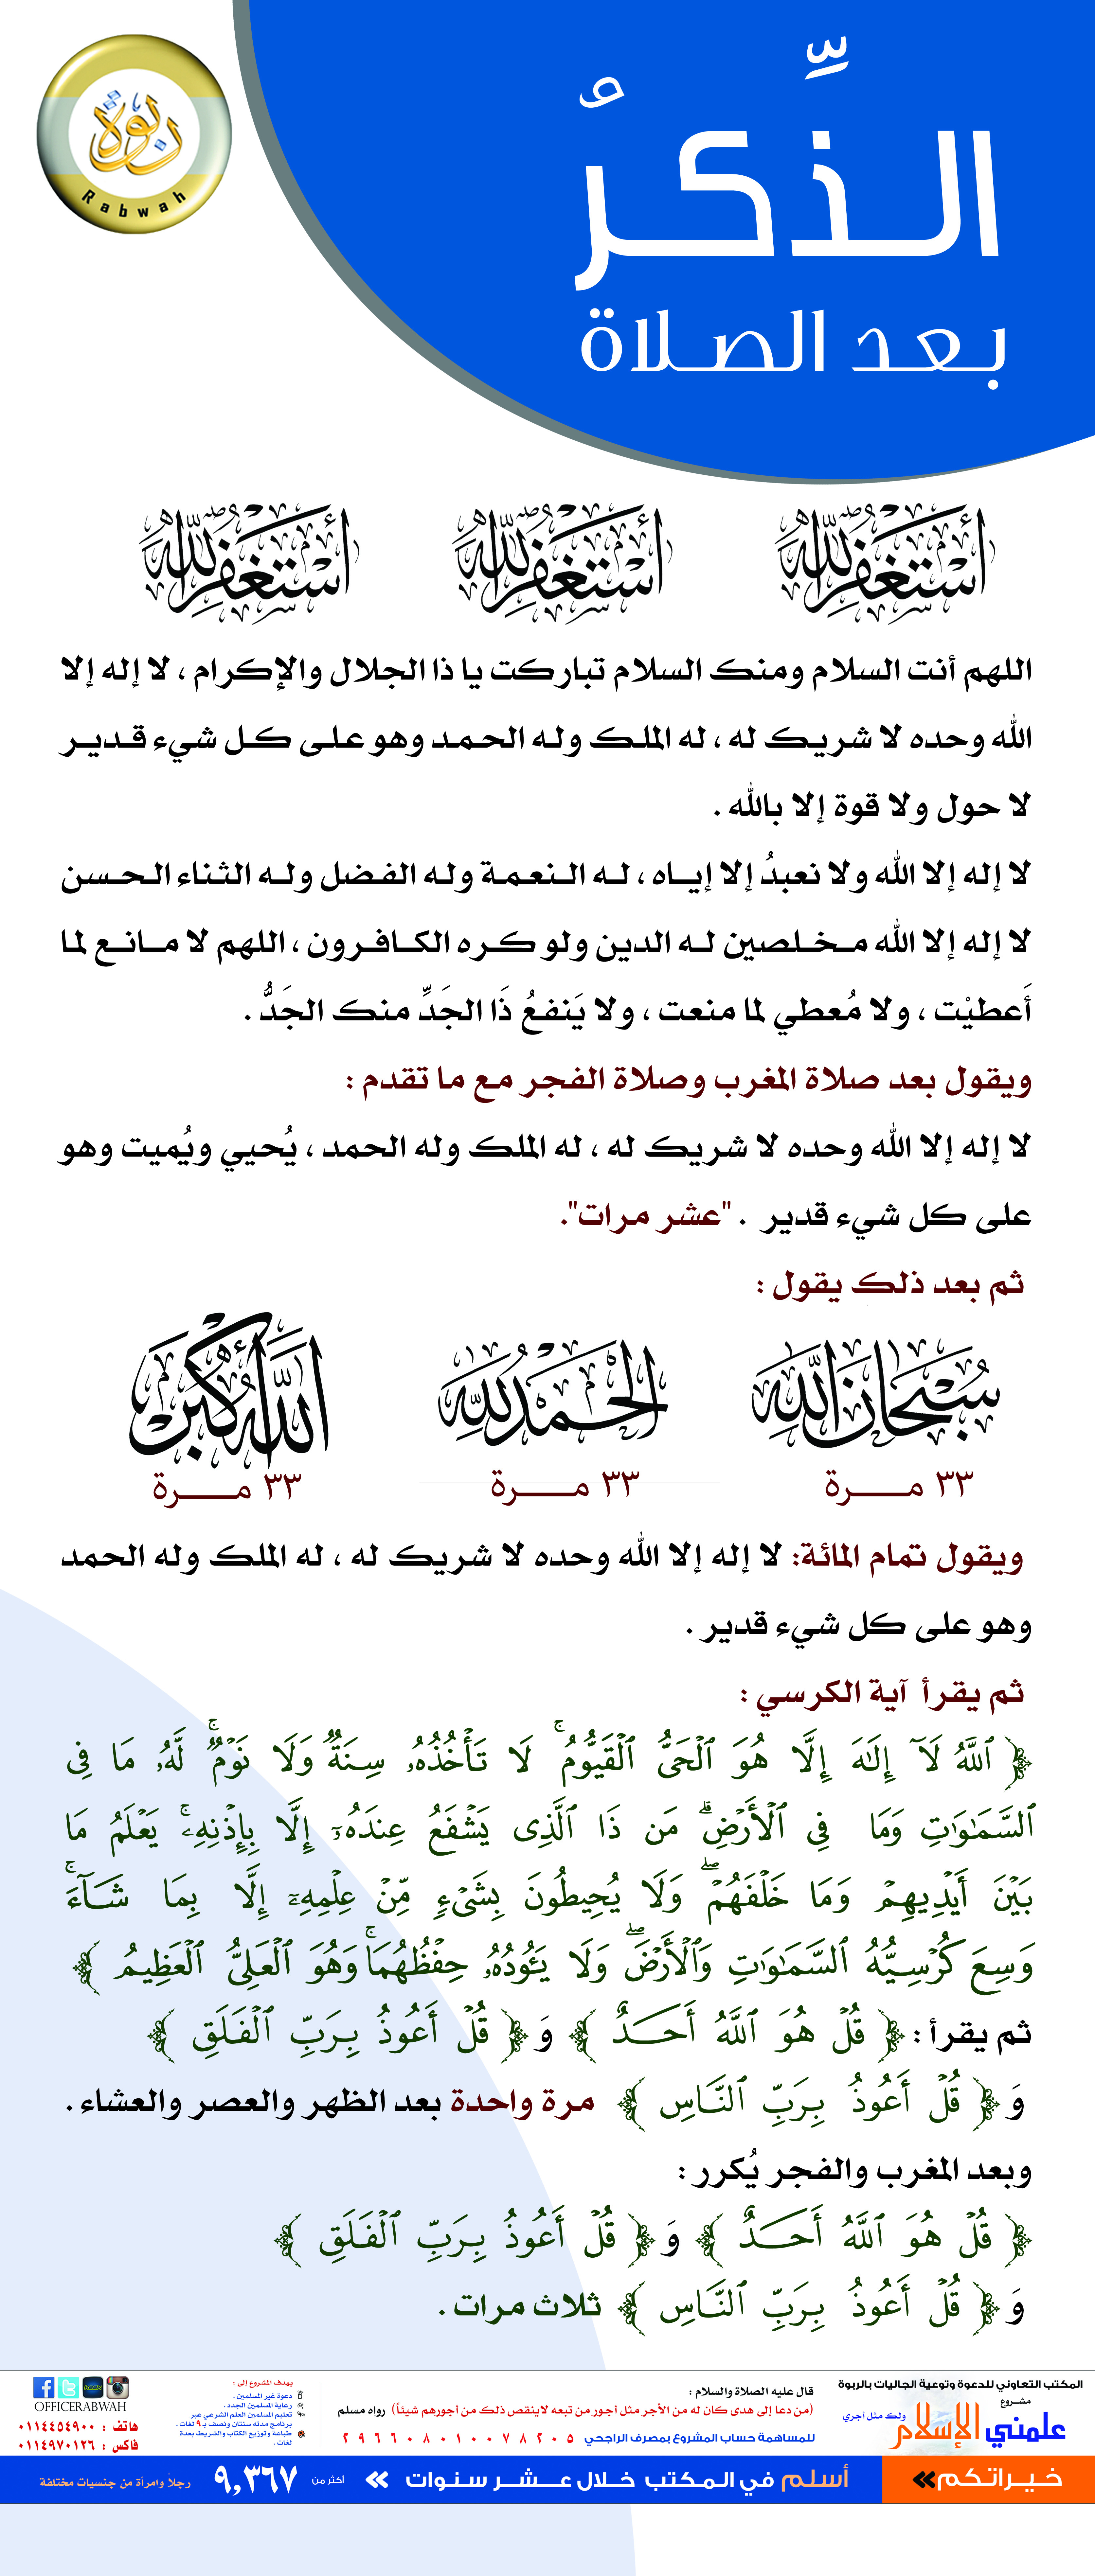 ربوة
Rabwah
الذِّكرُ
بعد الصلاة
أَسْتَغْفِرُ اللهَ أَسْتَغْفِرُ اللهَ أَسْتَغْفِرُ اللهَ
اللهم أنت السلام ومنك السلام تباركت يا ذا الجلال والإكرام ، لا إله إلا
الله وحده لا شريك له ، له الملك وله الحمد وهو على كل شيء قدير
لا حول ولا قوة إلا بالله .
لا إله إلا الله ولا نعبدُ إلا إياه ، له النعمة وله الفضل وله الثناء الحسن
لا إله إلا الله مخلصين له الدين ولو كره الكافرون ، اللهم لا مانع لما
أَعطيْت ، ولا مُعطي لما منعت ، ولا يَنفعُ ذَا الجَدِّ منك الجَدُّ .
ويقول بعد صلاة المغرب وصلاة الفجر مع ما تقدم :
لا إله إلا الله وحده لا شريك له ، له الملك وله الحمد ، يُحيي ويُميت وهو
على كل شيء قدير . "عشر مرات".
ثم بعد ذلك يقول :
سُبْحَانَ اللَّهِ الْحَمْدُ لِلَّهِ اللَّهُ أَكْبَرُ
٣٣ مرة ٣٣ مرة ٣٣ مرة
ويقول تمام المائة: لا إله إلا الله وحده لا شريك له ، له الملك وله الحمد
وهو على كل شيء قدير .
ثم يقرأ آية الكرسي :
﴿ ٱللَّهُ لَآ إِلَٰهَ إِلَّا هُوَ ٱلْحَىُّ ٱلْقَيُّومُ ۚ لَا تَأْخُذُهُۥ سِنَةٌ وَلَا نَوْمٌ ۚ لَّهُۥ مَا فِى
ٱلسَّمَٰوَٰتِ وَمَا فِى ٱلْأَرْضِ ۗ مَن ذَا ٱلَّذِى يَشْفَعُ عِندَهُۥٓ إِلَّا بِإِذْنِهِۦ ۚ يَعْلَمُ مَا
بَيْنَ أَيْدِيهِمْ وَمَا خَلْفَهُمْ ۖ وَلَا يُحِيطُونَ بِشَىْءٍ مِّنْ عِلْمِهِۦٓ إِلَّا بِمَا شَآءَ ۚ
وَسِعَ كُرْسِيُّهُ ٱلسَّمَٰوَٰتِ وَٱلْأَرْضَ ۖ وَلَا يَـُٔودُهُۥ حِفْظُهُمَا ۚ وَهُوَ ٱلْعَلِىُّ ٱلْعَظِيمُ ﴾
ثم يقرأ : ﴿ قُلْ هُوَ ٱللَّهُ أَحَدٌ ﴾ وَ ﴿ قُلْ أَعُوذُ بِرَبِّ ٱلْفَلَقِ ﴾
وَ ﴿ قُلْ أَعُوذُ بِرَبِّ ٱلنَّاسِ ﴾ مرة واحدة بعد الظهر والعصر والعشاء .
وبعد المغرب والفجر يُكرر :
﴿ قُلْ هُوَ ٱللَّهُ أَحَدٌ ﴾ وَ ﴿ قُلْ أَعُوذُ بِرَبِّ ٱلْفَلَقِ ﴾
وَ ﴿ قُلْ أَعُوذُ بِرَبِّ ٱلنَّاسِ ﴾ ثلاث مرات .
المكتب التعاوني للدعوة وتوعية الجاليات بالربوة
مشروع
علمني الإسلام
ولك مثل أجري
قال عليه الصلاة والسلام :
(من دعا إلى هدى كان له من الأجر مثل أجور من تبعه لاينقص ذلك من أجورهم شيئاً) رواه مسلم
للمساهمة حساب المشروع بمصرف الراجحي ٢٩٦٦٠٨٠١٠٠٧٨٢٠٥
يهدف المشروع إلى :
دعوة غير المسلمين .
رعاية المسلمين الجدد .
تعليم المسلمين العلم الشرعي عبر
برنامج مدته سنتان ونصف بـ ٩ لغات .
طباعة وتوزيع الكتاب والشريط بعدة
لغات .
OFFICERABWAH
هاتف : ٠١١٤٤٥٤٩٠٠
فاكس : ٠١١٤٩٧٠١٢٦
خيراتكم
أسلم في المكتب خلال عشر سنوات
أكثر من ٩,٣٦٧ رجلاً وامرأة من جنسيات مختلفة